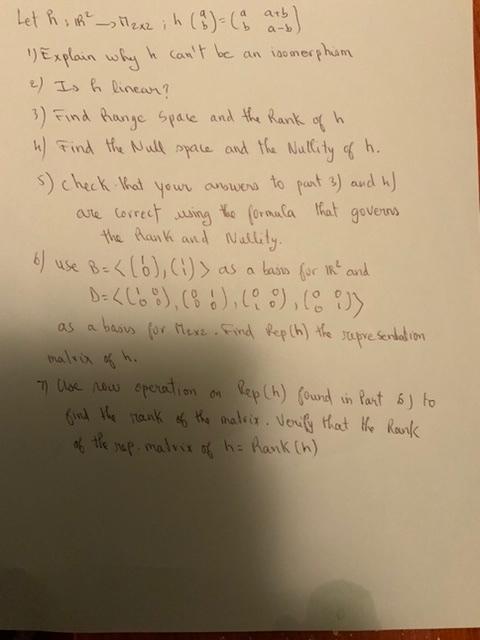 Let h: ℝ² → M₂ₓ₂ ; h (a b) = (a a+b b a-b)
1) Explain why h can't be an isomorphism
2) Is h linear?
3) Find Range Space and the Rank of h
4) Find the Null space and the Nullity of h.
5) check that your answers to part 3) and 4)
are correct using the formula that governs
the Rank and Nullity.
6) use B = <(1 0), (1 1)> as a basis for ℝ² and
D = <(1 0 0 0), (0 1 0 0), (0 0 1 0), (0 0 0 1)>
as a basis for M₂ₓ₂. Find Rep(h) the representation
matrix of h.
7) Use row operation on Rep(h) found in Part 6) to
find the rank of the matrix. Verify that the Rank
of the rep. matrix of h = Rank(h)